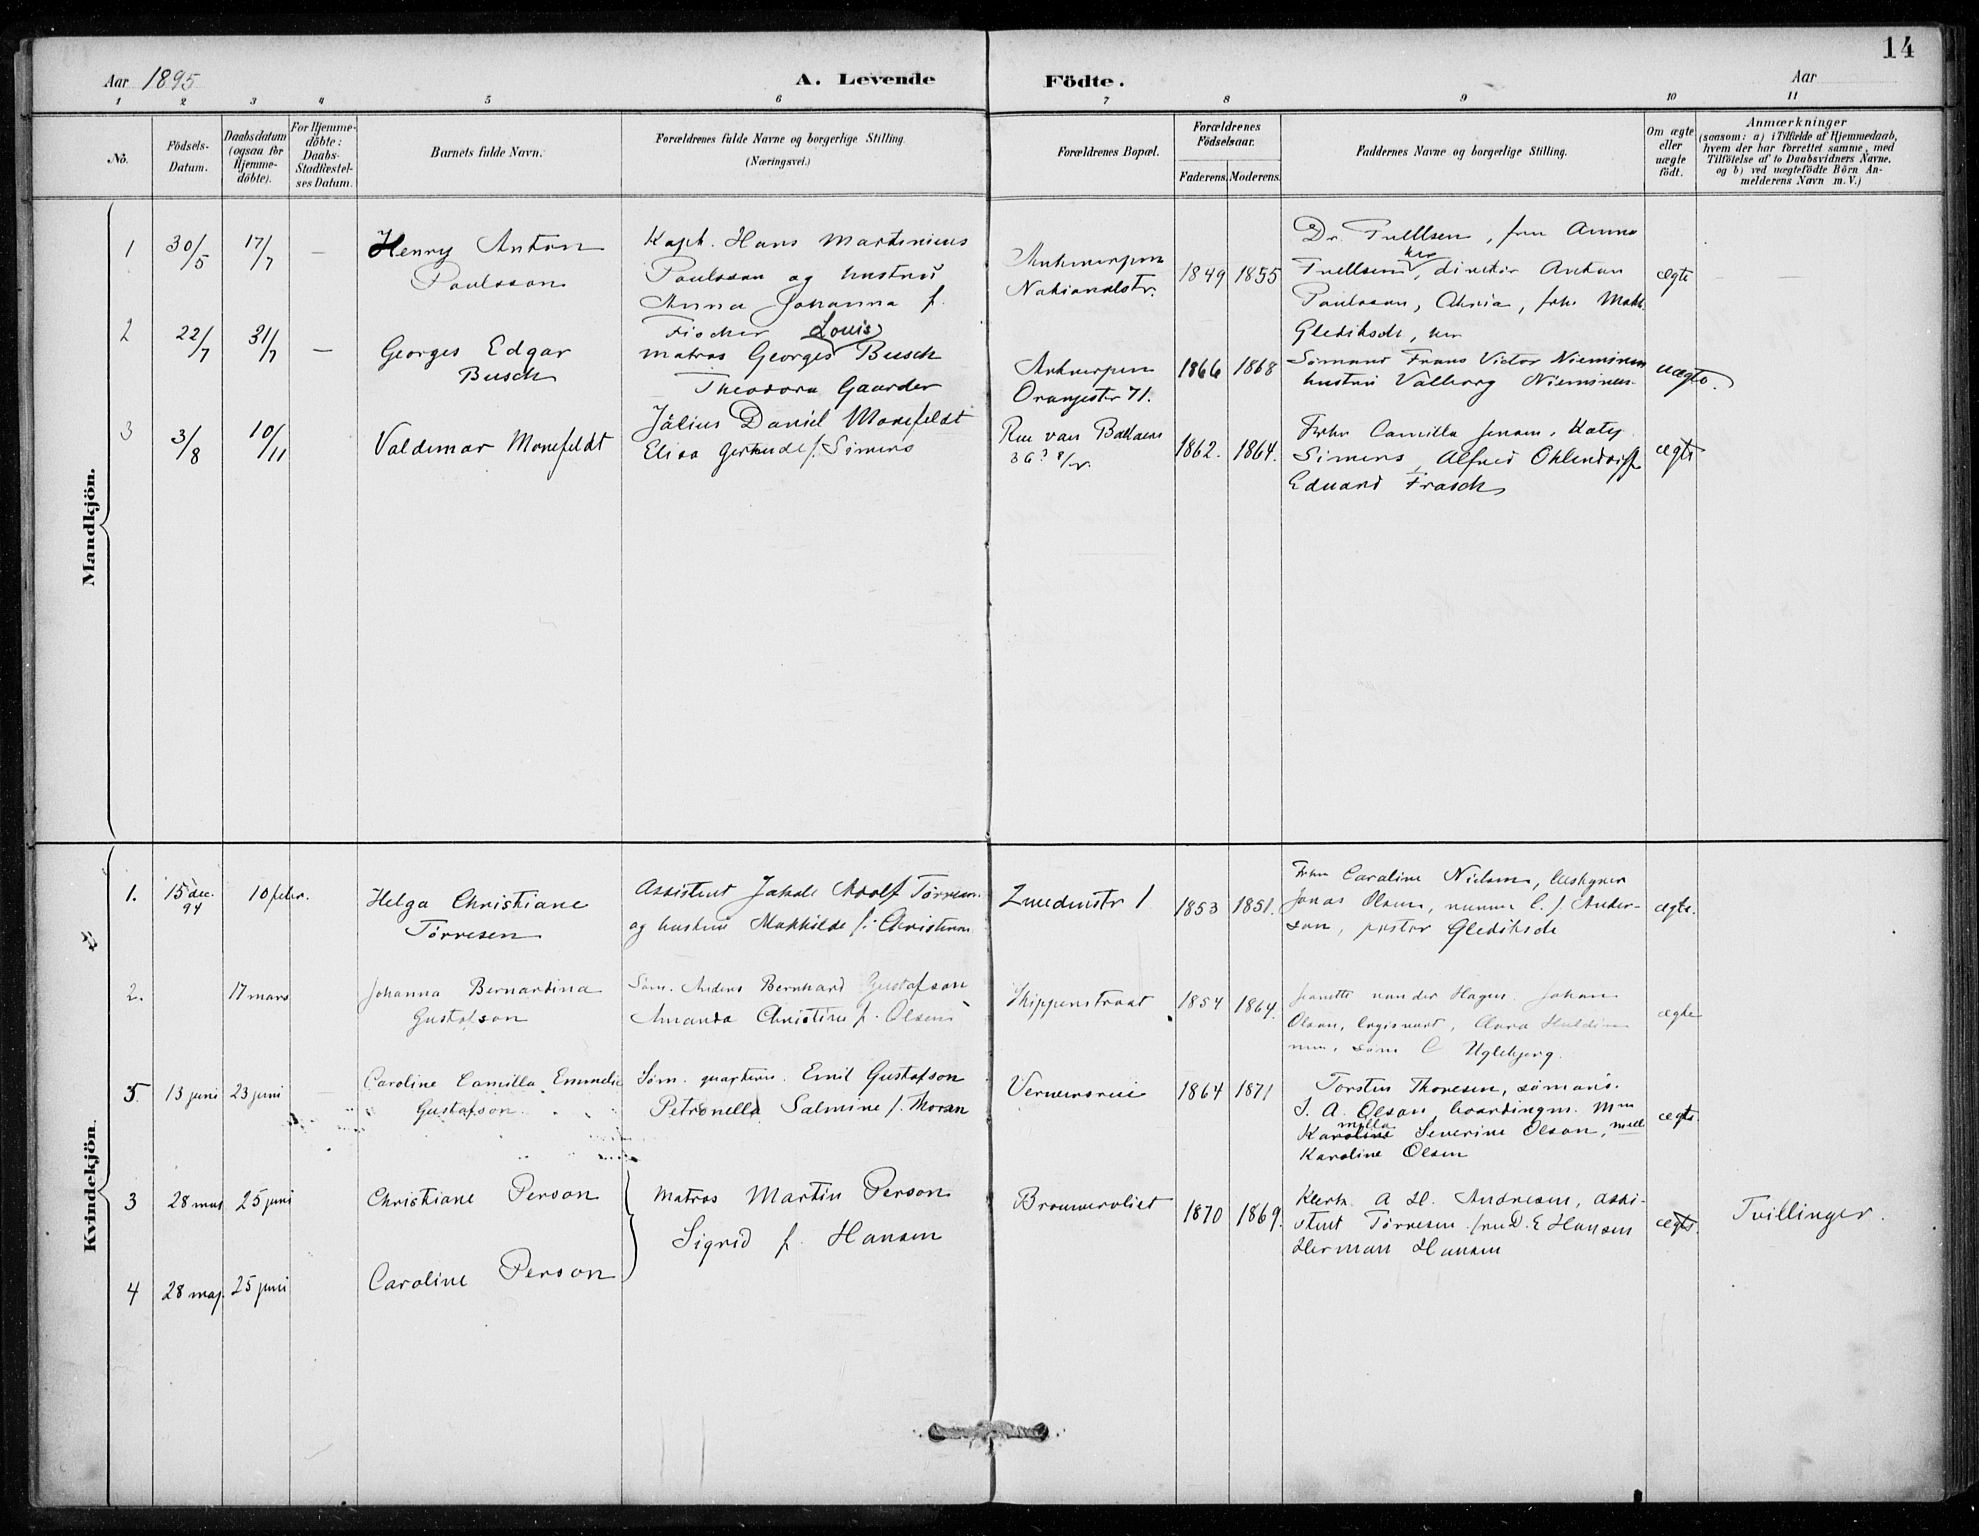 14
Aar 1895
A. Levende Födte.
Aar
1 2 3 4 5 6 7 8 9 10 11
No.
Födsels-Datum.
Daabsdatum (ogsaa for Hjemme-döbte).
For Hjemme-döbte: Daabs-Stadfæstel-ses Datum.
Barnets fulde Navn.
Forældrenes fulde Navne og borgerlige Stilling.
(Næringsvei.)
Forældrenes Bopæl.
Forældrenes Födselsaar.
Faderens. Moderens.
Faddernes Navne og borgerlige Stilling.
Om ægte eller uægte födt.
Anmærkninger
(saasom: a) i Tilfælde af Hjemmedaab,
hvem der har forrettet samme, med
Tilföielse af to Daabsvidners Navne,
og b) ved uægtefödte Börn An-
melderens Navn m. V.)
Mandkjön.
1 30/5 17/7 — Henry Anton
Paulsson
Kapt. Hans Martinius
Paulsson og hustru
Anna Johanna f.
Fischer
Antwerpen
Nationalstr.
1849 1855
Dr. , fru Anna
, direktør Anton
Paulsson, , frk.
Gleditsch, her
ægte — —
2 22/7 31/7 — Georges Edgar
Busch
Louis
matros Georges Busch
Theodora Gaarder
Antwerpen
Oranjestr 71.
1866 1868
Sømand Frans Victor Nieminen
hustru Valborg Nieminen.
uægte.
3 3/8 10/11 Valdemar Monefeldt
Julius Daniel Monefeldt
Elisa Gertrude f. Simers
Rue van
36
1862. 1864.
Frkn Camilla Jensen, Katy
Simers, Alfred Ohlendorff
Eduard Frasch
ægte
Kvindekjön.
1. 15 dec. 94 10 febr. Helga Christiane
Tørresen
Assistent Jakob Adolf Tørresen
og hustru Mathilde f. Christensen
1
1853 1851.
Frkn Caroline Nielsen,
Jonas Olsen, C. f. Ander-
son, pastor Gleditsch
ægte.
2. 17 mars Johanna Bernardina
Gustafson
Søm. Anders Bernhard Gustafson
Amanda Christine f. Olsen
Skippenstraat 1854 1864.
Jeanette van der Hagen. Johan
Olsen, , Clara
, søm C Uglebjerg.
ægte
5. 13 juni 23 juni Caroline Camilla Emmelie
Gustafson
Søm. Emil Gustafson
Petronella Salmine f. Thoran
1864 1871
Torsten Thoresen, sømand.
J. A. Olson, boardingm.
Karoline milla Severine Olson,
Karoline Olsen
ægte.
3 28 maj 25 juni Christiane Person
Matros Martin Person
Sigrid f. Hansen
Brouwersvliet 1870 1869.
A H. Andresen, assi-
stent Tørresen, fru D. E Hansen
Herman Hansen
ægte. Tvillinger.
4 28 maj. 25 juni Caroline Person